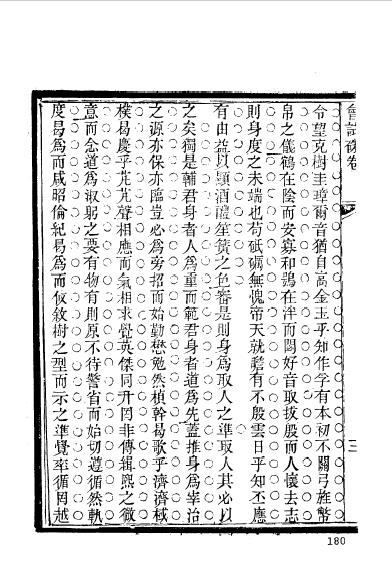 會試硃卷
三
令望克樹圭璋爾音猶自高金玉乎知作孚有本初不關弓旌幣
帛之儀鶴在陰而安寡和鴞在泮而閟好音取拔殷而人懷去志
則身度之未端也苟砥礪無愧帝天就瞻有不殷雲日乎知不應
有由益以顯酒醴笙簧之色蓍是則身爲取人之準取人其必以
之矣獨是輔君身者人爲重而範君身者道爲先蓋推身爲宰治
之源亦保亦臨豈必爲旁招而始勤懋勉然楨幹曷歌乎濟濟棫
樸曷慶乎芃芃聲相應而氣相求覺英傑同升罔非傳緝熙之微
意而念道爲淑躬之要有物有則原不待警省而始切遵循然執
度曷爲而咸昭倫紀曷爲而攸敘樹之型而示之準覺率循罔越
180